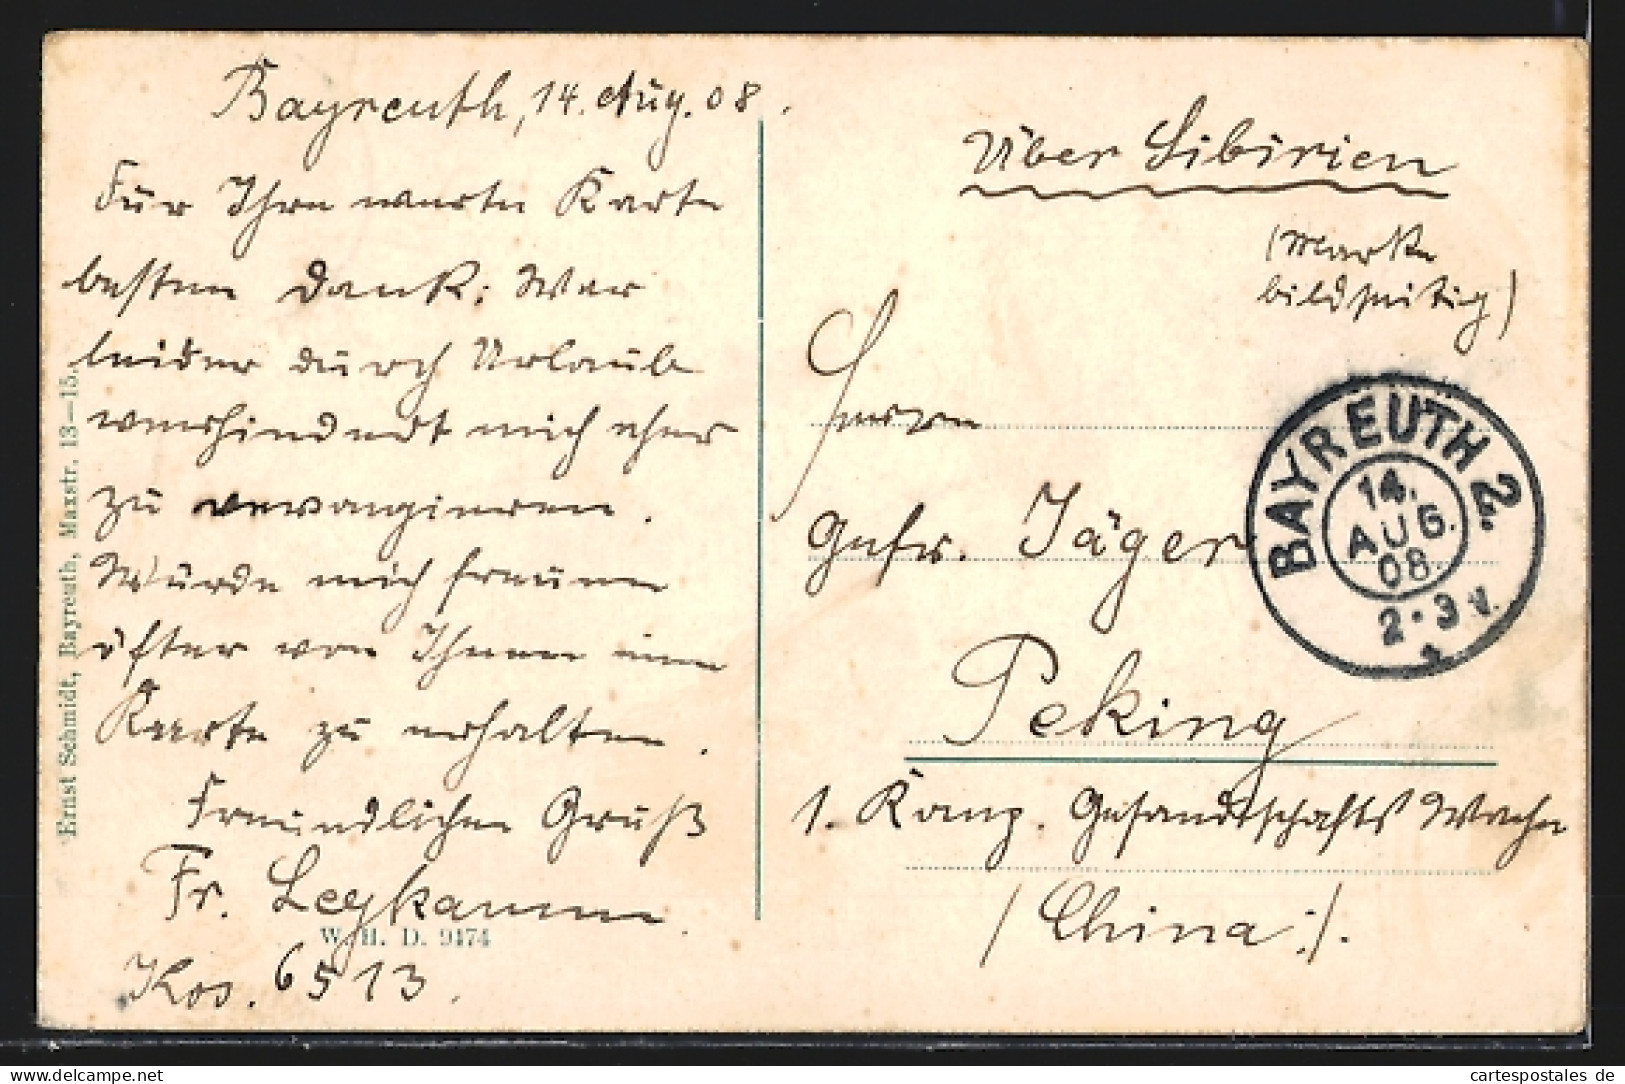 Bayreuth, 14. Aug. 08.
Für Ihre werte Karte
besten Dank; War
leider durch Urlaub
verhindert mich eher
zu revangieren.
Würde mich freuen
öfter von Ihnen eine
Karte zu erhalten.
Freundlichen Gruß
Fr. Leykamm
Kos. 6513.
W. H. D. 9474
Ernst Schmidt, Bayreuth, Maxstr. 13—15.
Über Sibirien
(Marke
bildseitig)
Herrn
Gefr. Jäger
Peking
1. Komp. Gesandtschafts Wache
/China:/.
BAYREUTH 2.
14.
AUG.
08.
2-3 V.
cartespostales de